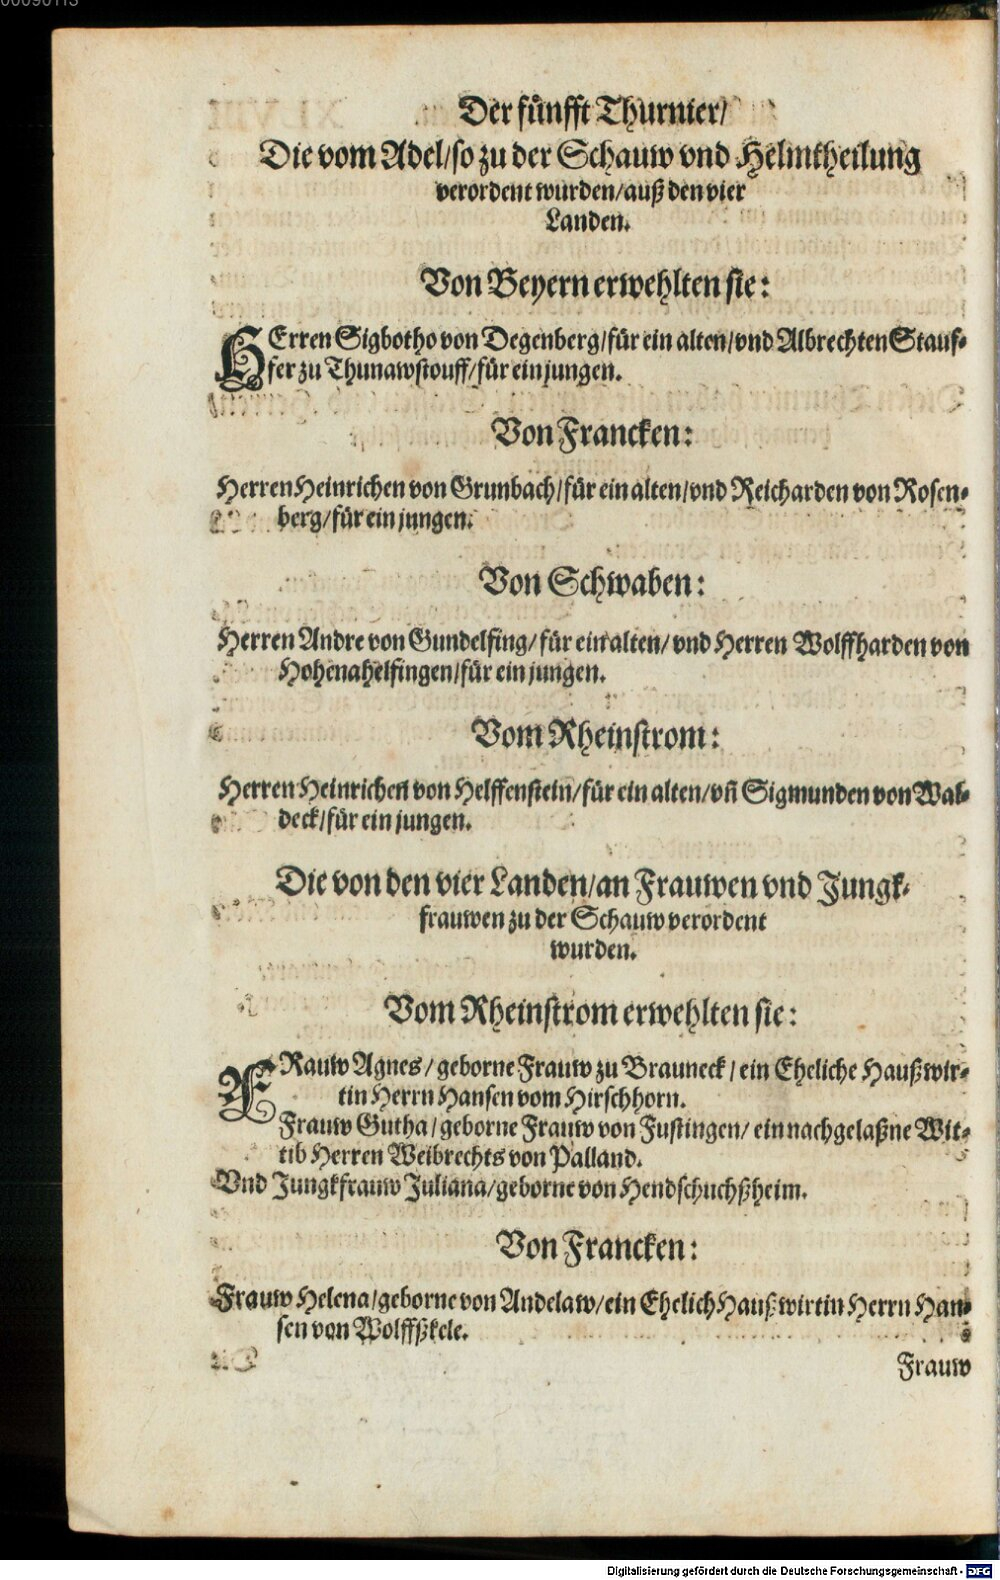 Der fünfft Thurnier/
Die vom Adel/so zu der Schauw vnd Helmtheilung
verordent wurden/auß den vier
Landen.
Von Beyern erwehlten sie:
HErren Sigbotho von Degenberg/für ein alten/vnd Albrechten Stauf-
fer zu Thunawstouff/für ein jungen.
Von Francken:
Herren Heinrichen von Grunbach/für ein alten/vnd Reicharden von Rosen-
berg/für ein jungen.
Von Schwaben:
Herren Andre von Gundelfing/für ein alten/vnd Herren Wolffharden von
Hohenahelfingen/für ein jungen.
Vom Rheinstrom:
Herren Heinrichen von Helffenstein/für ein alten/vñ Sigmunden von Wal-
deck/für ein jungen.
Die von den vier Landen/an Frauwen vnd Jungk-
frauwen zu der Schauw verordent
wurden.
Vom Rheinstrom erwehlten sie:
FRauw Agnes/geborne Frauw zu Brauneck/ein Eheliche Haußwir-
tin Herrn Hansen vom Hirschhorn.
Frauw Gutha/geborne Frauw von Fustingen/ein nachgelaßne Wit-
tib Herren Weibrechts von Palland.
Vnd Jungkfrauw Juliana/geborne von Hendschuchßheim.
Von Francken:
Frauw Helena/geborne von Andelaw/ein Ehelich Haußwirtin Herrn Han-
sen von Wolffßkele.
Frauw
Digitalisierung gefördert durch die Deutsche Forschungsgemeinschaft - DFG